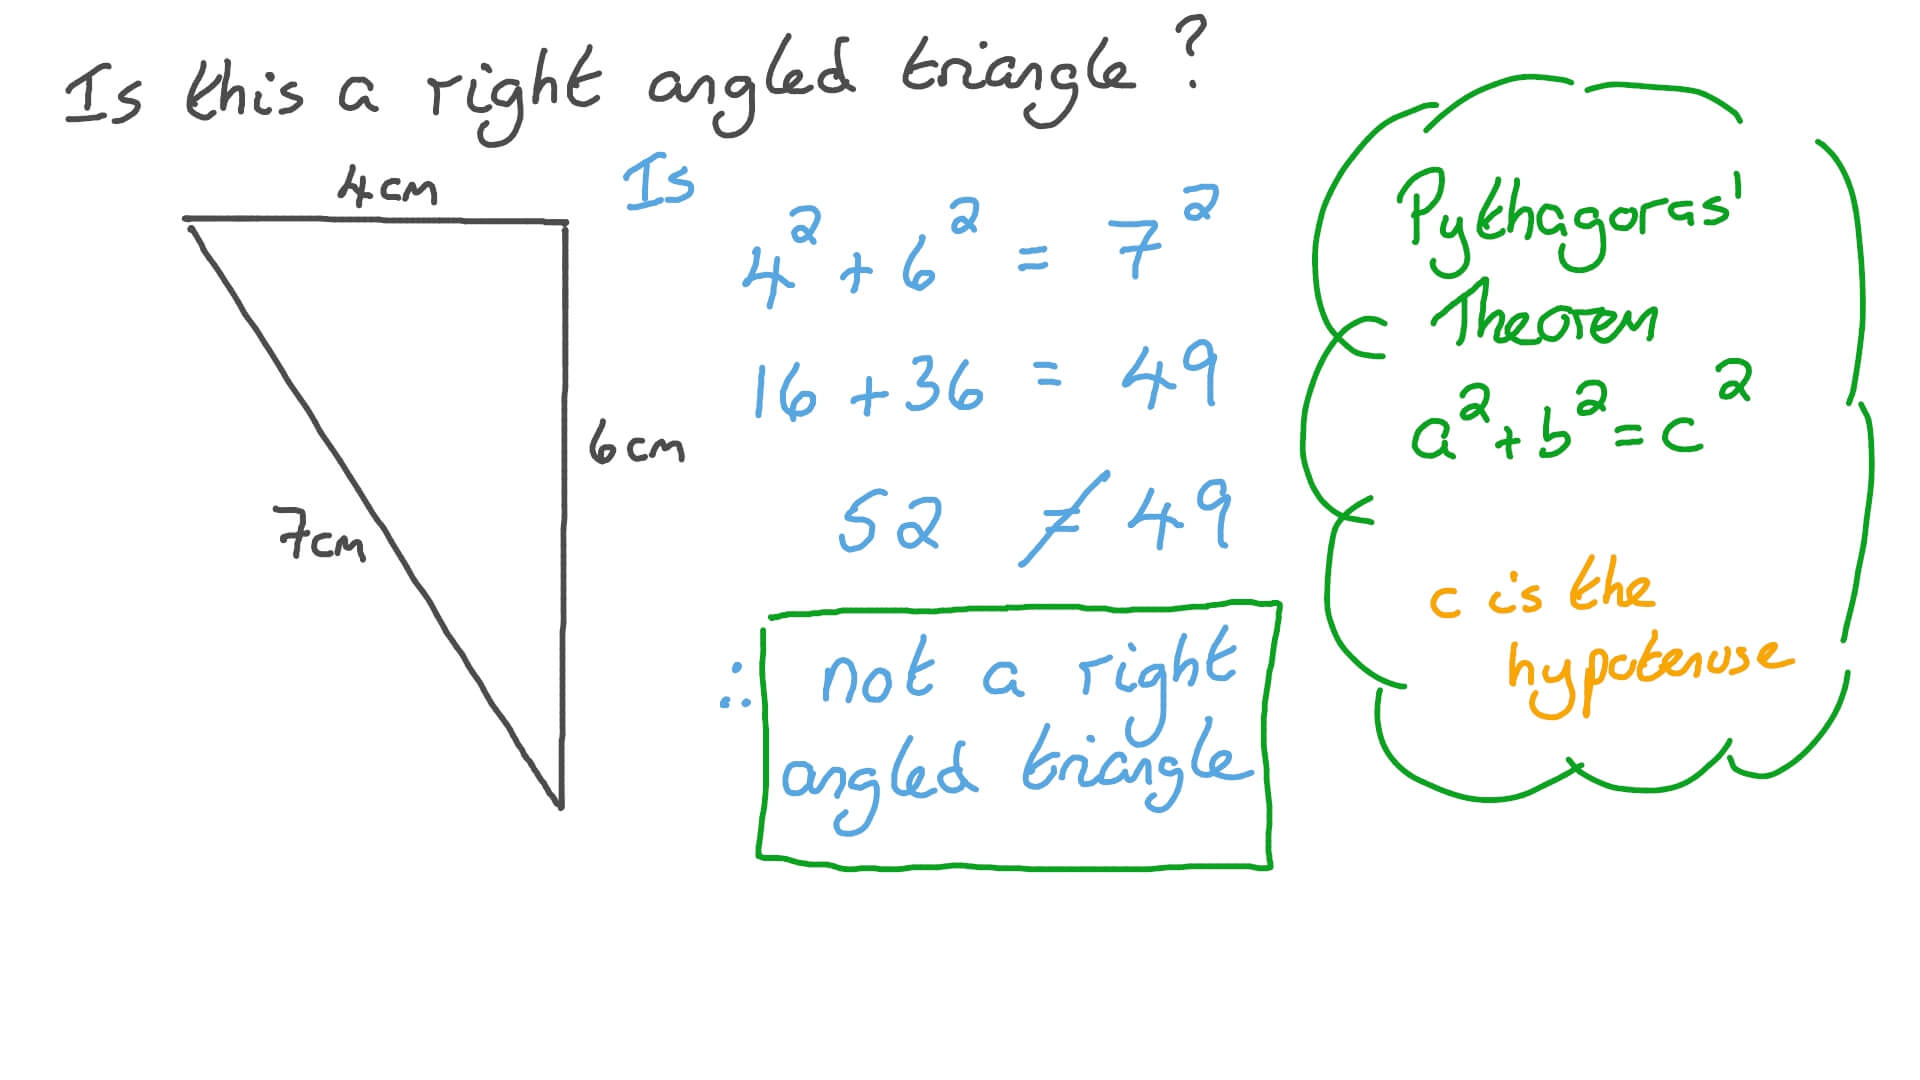 Is this a right angled triangle?
4cm
6cm
7cm
Is
4² + 6² = 7²
16 + 36 = 49
52 ≠ 49
∴ not a right
angled triangle
Pythagoras'
Theorem
a² + b² = c²
c is the
hypotenuse